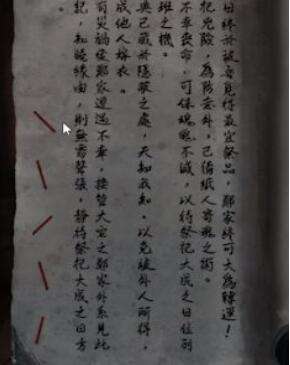 日終於被吾覓得最宜祭品，鄭家終可大為轉運！
祀兇險，為防意外，已備紙人寄魂之術。
不幸喪命，可保魂魄不滅，以待祭祀大成之日位列
班之機。
典已藏於隱蔽之處，天知我知，以免被外人所得，
成他人嫁衣。
有災禍使鄭家遭遇不幸，接管大宅之鄭家外系見此
記，知曉緣由，則無需聲張，靜待祭祀大成之日方
。